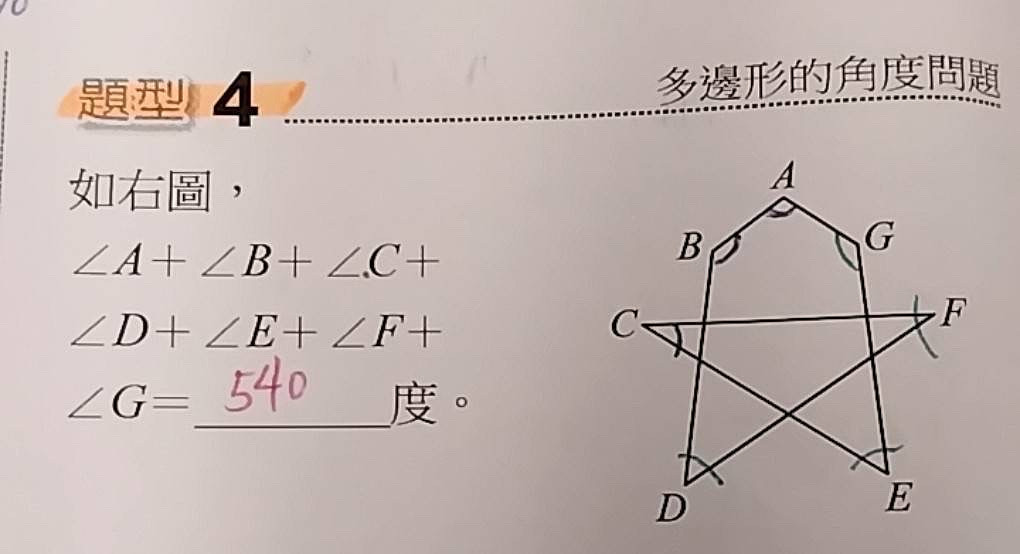 題型 4
多邊形的角度問題
如右圖，
∠A＋∠B＋∠C＋
∠D＋∠E＋∠F＋
∠G＝ 540 度。
A
B
G
C
F
D
E